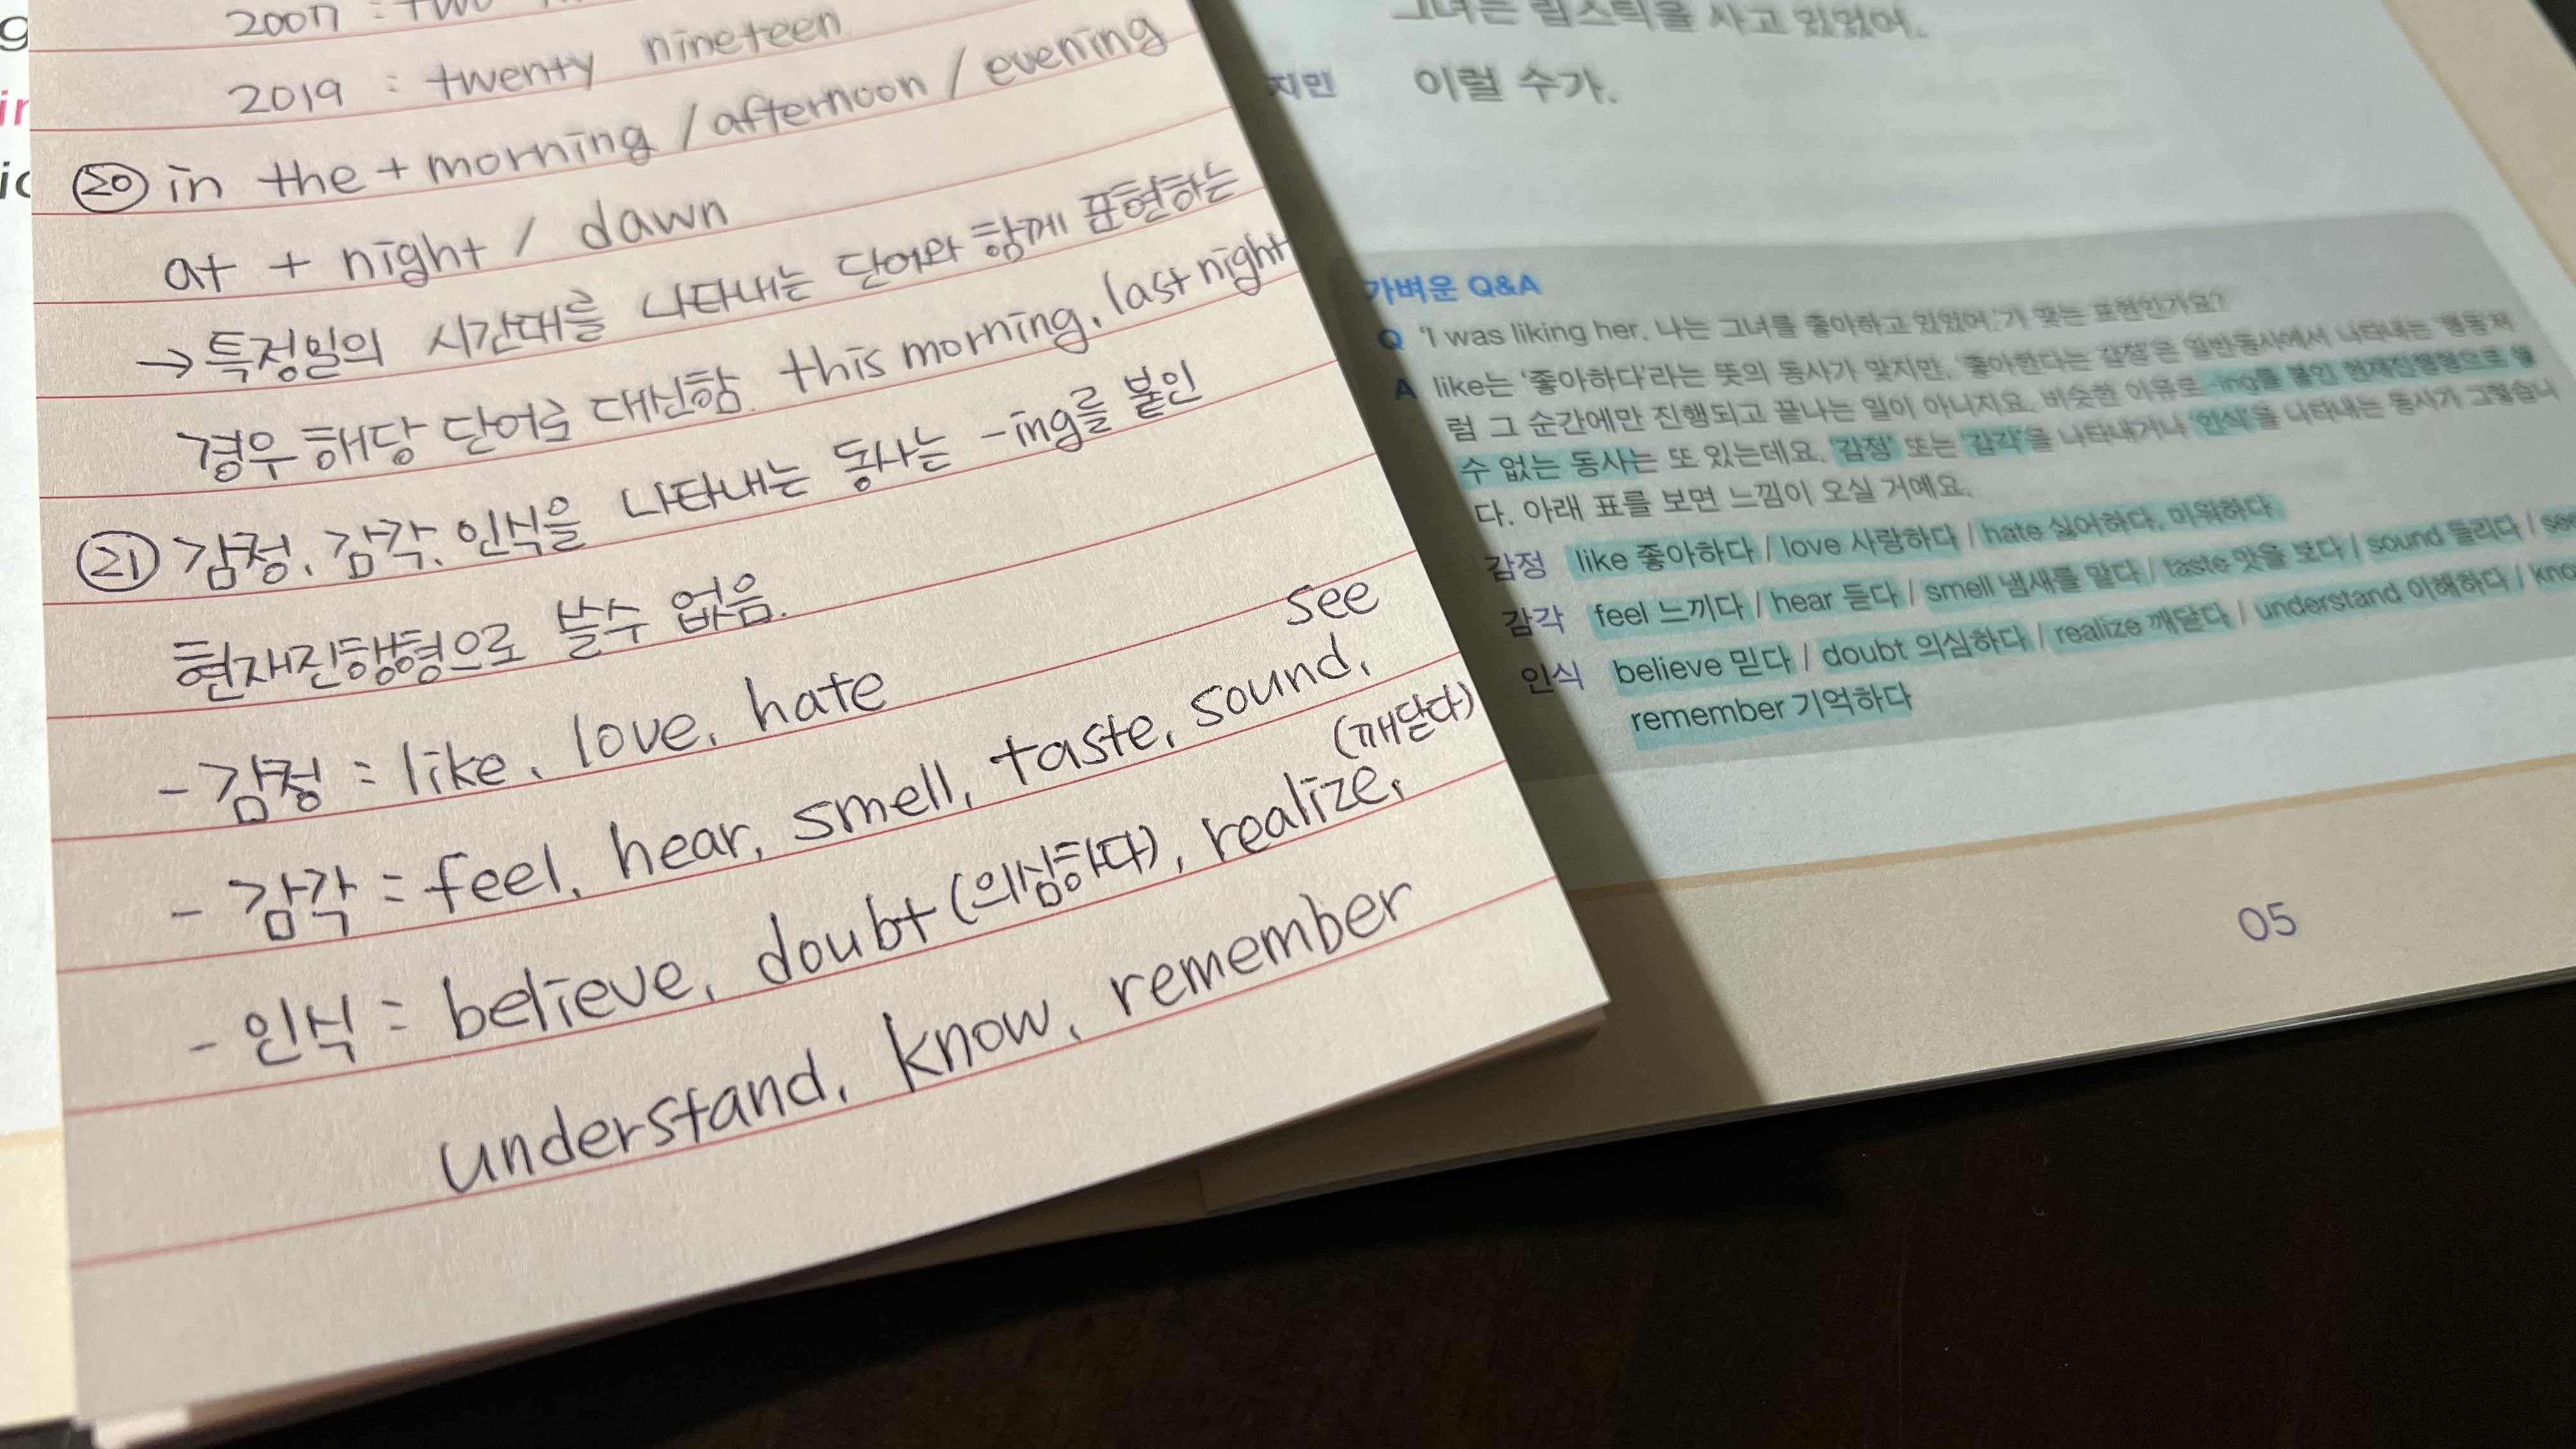 2007 : two
2019 : twenty nineteen
⑳ in the + morning / afternoon / evening
at + night / dawn
→ 특정일의 시간대를 나타내는 단어와 함께 표현하는
경우 해당 단어로 대신함. this morning, last night
㉑ 감정, 감각, 인식을 나타내는 동사는 -ing를 붙인
현재진행형으로 쓸수 없음.
- 감정 = like, love, hate
see
- 감각 = feel, hear, smell, taste, sound,
(깨닫다)
- 인식 = believe, doubt (의심하다), realize,
understand, know, remember
그녀는 립스틱을 사고 있었어.
지민 이럴 수가.
가벼운 Q&A
Q 'I was liking her. 나는 그녀를 좋아하고 있었어.'가 맞는 표현인가요?
A like는 '좋아하다'라는 뜻의 동사가 맞지만, '좋아한다는 감정'은 일반동사에서 나타내는 '행동'처
럼 그 순간에만 진행되고 끝나는 일이 아니지요. 비슷한 이유로 -ing를 붙인 현재진행형으로 쓸
수 없는 동사는 또 있는데요. '감정' 또는 '감각'을 나타내거나 '인식'을 나타내는 동사가 그렇습니
다. 아래 표를 보면 느낌이 오실 거예요.
감정 like 좋아하다 / love 사랑하다 / hate 싫어하다, 미워하다
감각 feel 느끼다 / hear 듣다 / smell 냄새를 맡다 / taste 맛을 보다 / sound 들리다 /
인식 believe 믿다 / doubt 의심하다 / realize 깨닫다 / understand 이해하다 /
remember 기억하다
05